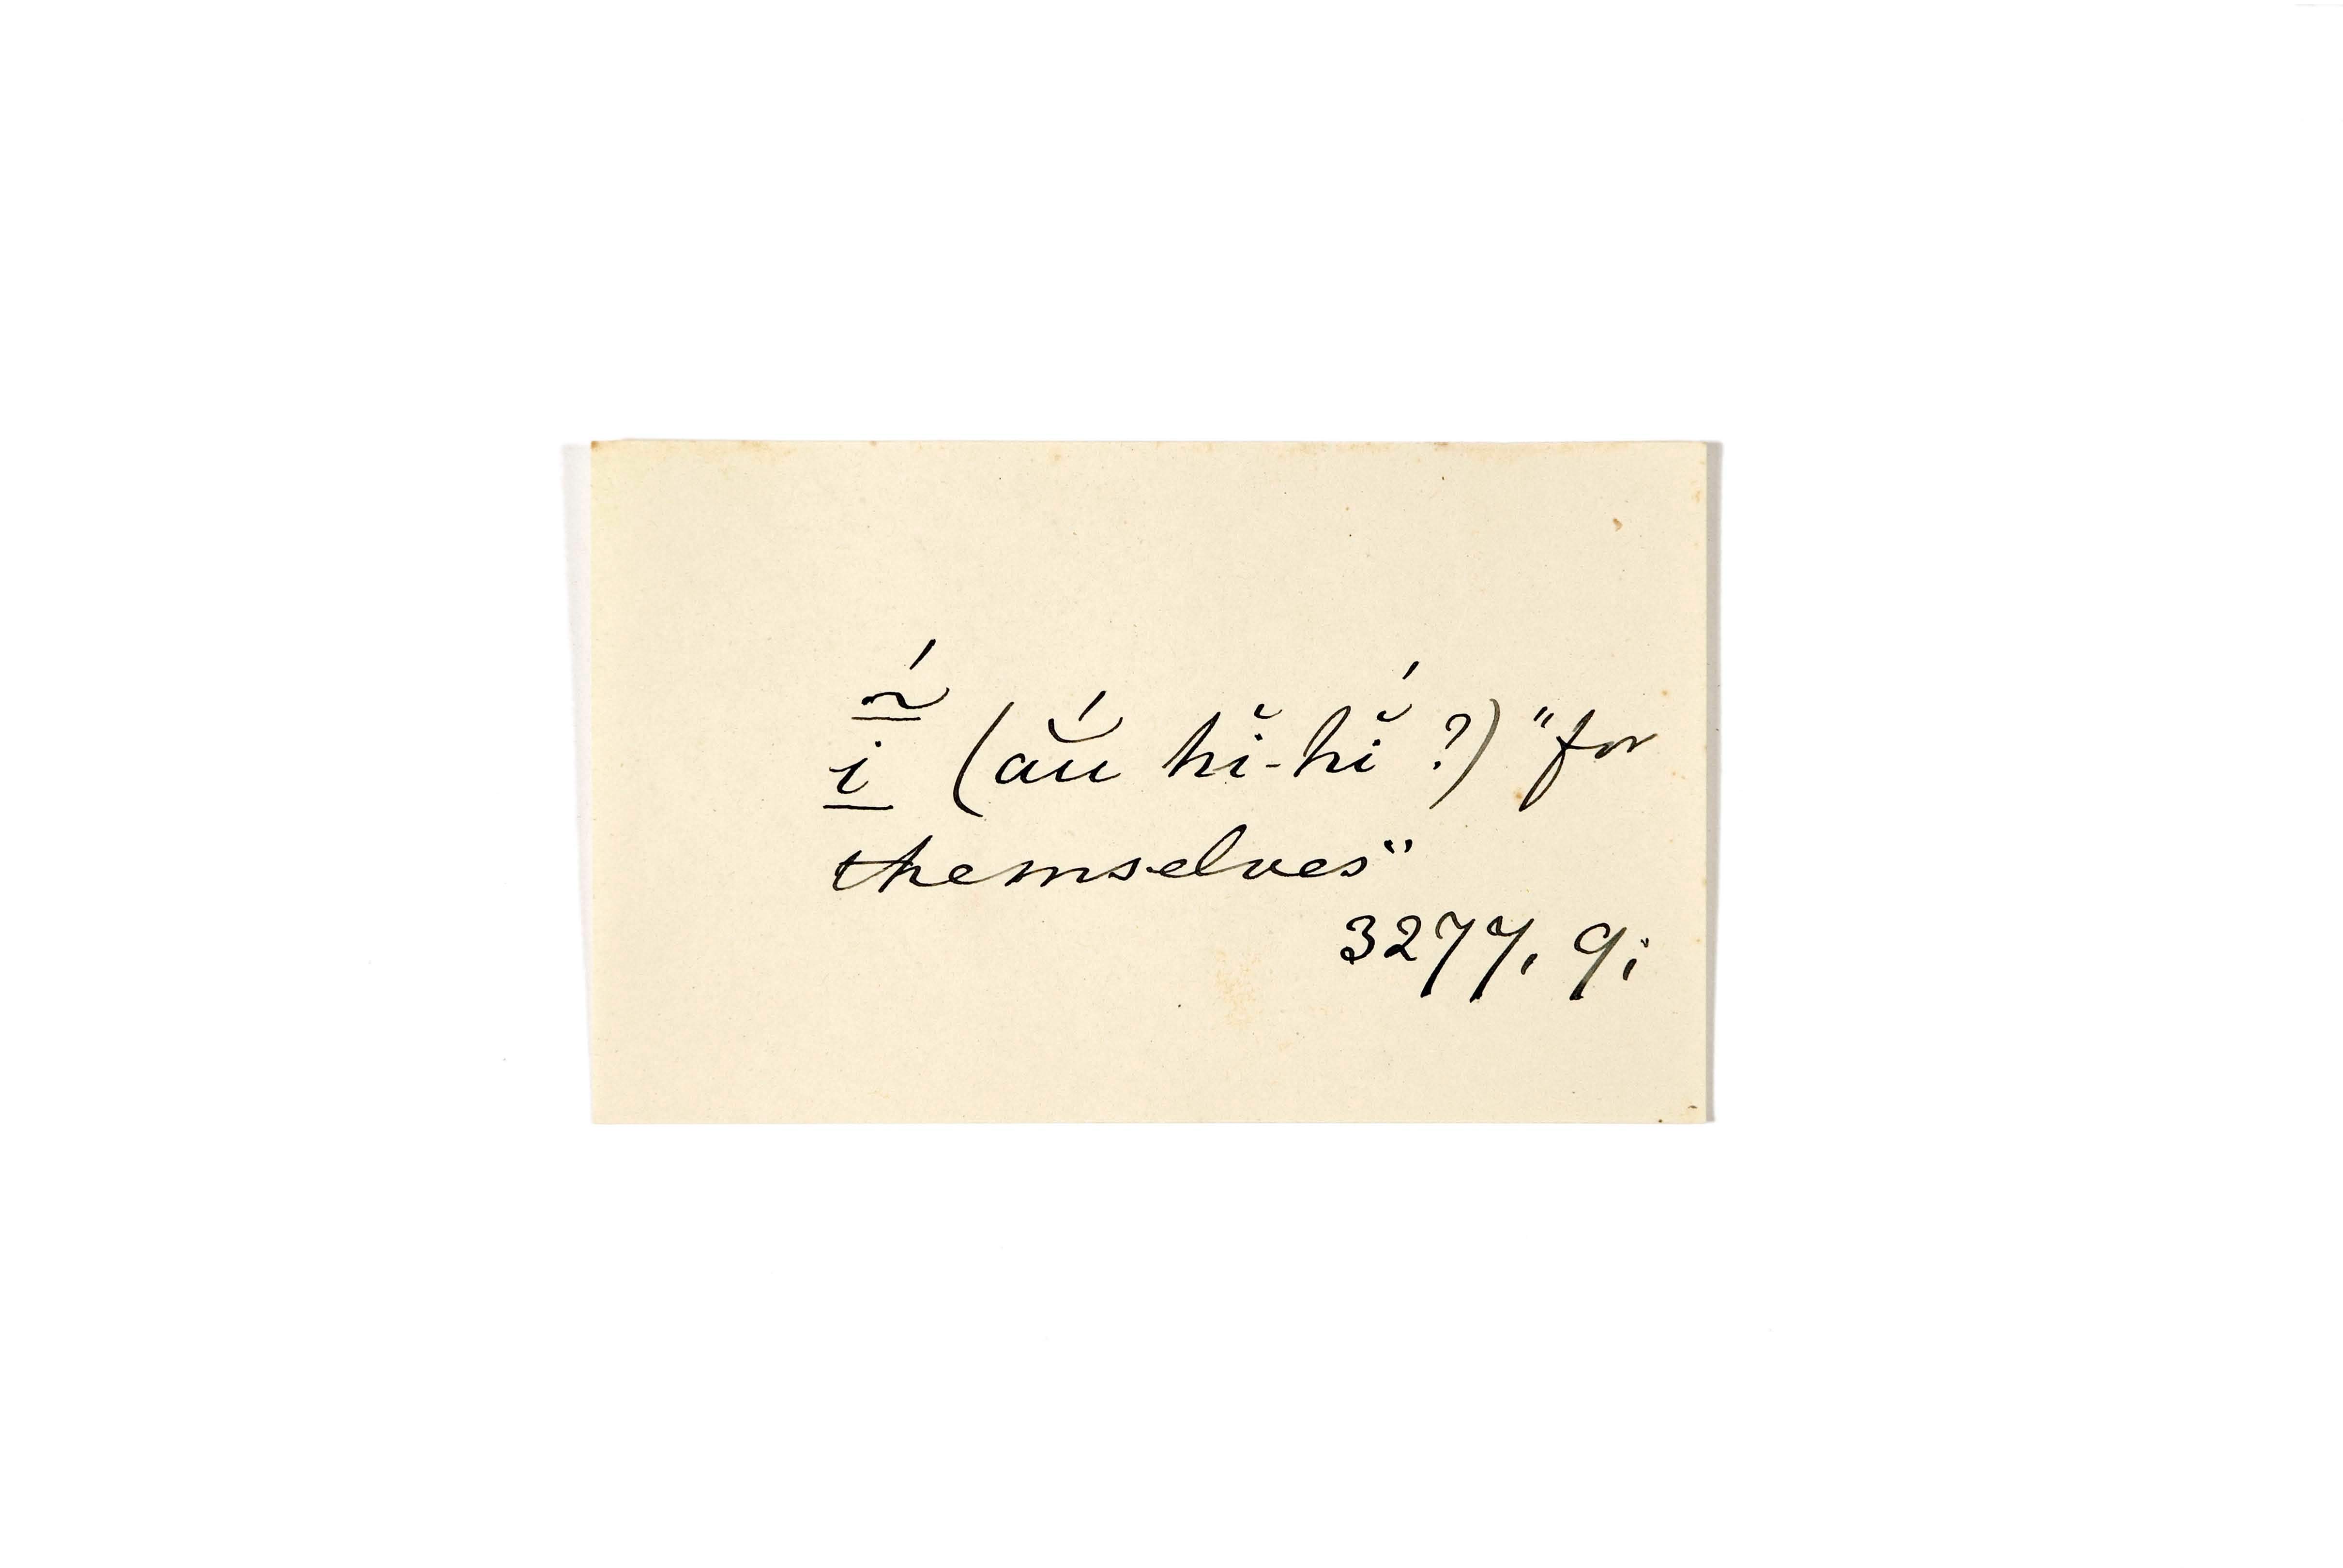 ĩ̱́ (aŭ́ hĭ-hĭ́ ?) "for
themselves"
3277, 9;